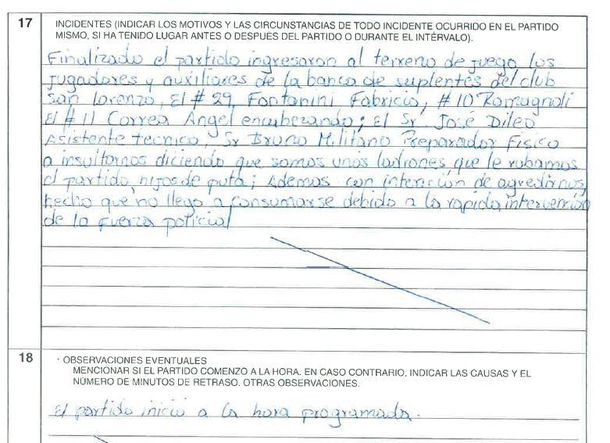 17
INCIDENTES (INDICAR LOS MOTIVOS Y LAS CIRCUNSTANCIAS DE TODO INCIDENTE OCURRIDO EN EL PARTIDO
MISMO, SI HA TENIDO LUGAR ANTES O DESPUES DEL PARTIDO O DURANTE EL INTÉRVALO).
Finalizado el partido ingresaron al terreno de juego los
jugadores y auxiliares de la banca de suplentes del club
San Lorenzo, El # 29, Fontanini, Fabricio, # 10 Romagnoli
El # 11 Correa Angel encabezando; El Sr. José Dileo
Asistente tecnico, Sr Bruno Militano Preparador Fisico
a insultarnos diciendo que somos unos ladrones que le robamos
el partido, hijos de puta; Ademas con intención de agredirnos,
hecho que no llego a consumarse debido a la rapida intervención
de la fuerza policial
18
- OBSERVACIONES EVENTUALES
MENCIONAR SI EL PARTIDO COMENZO A LA HORA. EN CASO CONTRARIO, INDICAR LAS CAUSAS Y EL
NÚMERO DE MINUTOS DE RETRASO. OTRAS OBSERVACIONES.
El partido inició a la hora programada.